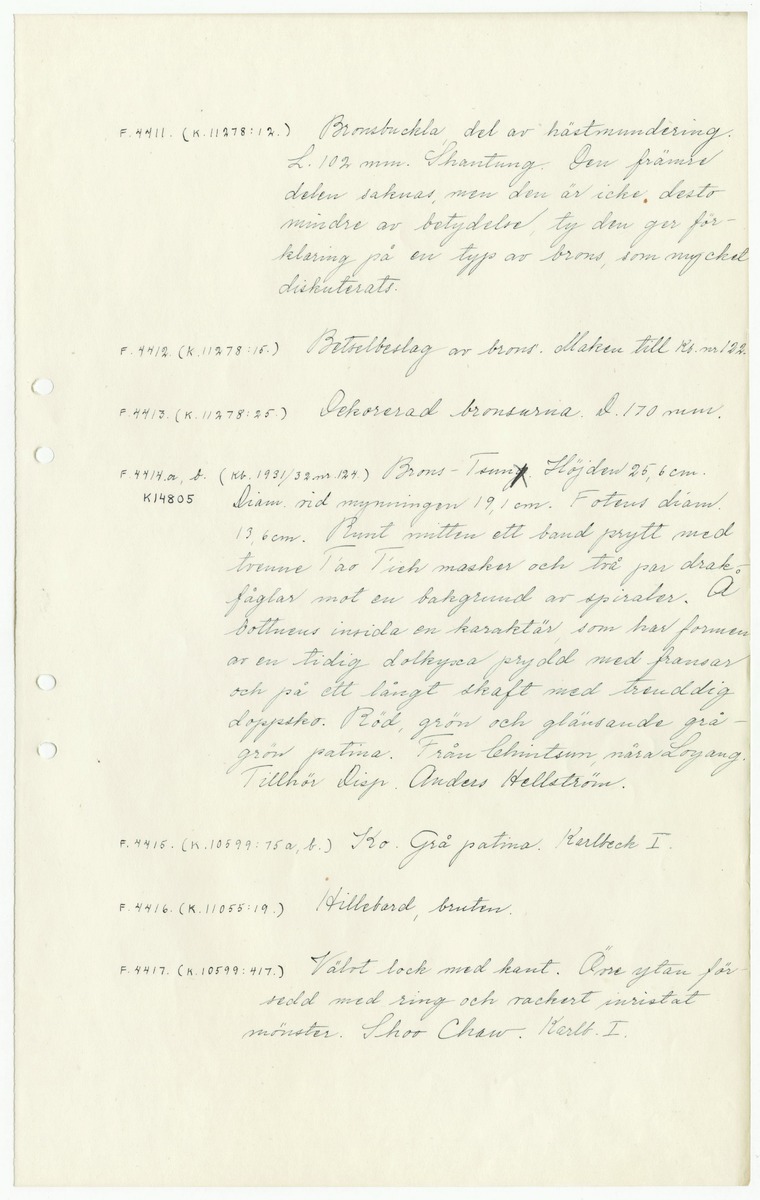 F.4411. (K.11278:12.) Bronsbuckla, del av hästmundering.
L. 102 mm. Shantung. Den främre
delen saknas, men den är icke desto
mindre av betydelse, ty den ger för-
klaring på en typ av brons, som mycket
diskuterats.
F.4412. (K.11278:15.) Betselbeslag av brons. Maken till Kb. nr 122.
F.4413. (K.11278:25.) Dekorerad bronsurna. D. 170 mm.
F.4414.a, b. (Kb. 1931/32 nr. 124.) Brons-Tsun. Höjden 25,6 cm.
K14805 Diam. vid mynningen 19,1 cm. Fotens diam.
13,6 cm. Runt mitten ett band prytt med
tvenne T'ao T'ieh masker och två par drak-
fåglar mot en bakgrund av spiraler. Å
bottnens insida en karaktär som har formen
av en tidig dolkyxa prydd med fransar
och på ett långt skaft med treuddig
doppsko. Röd, grön och glänsande grå-
grön patina. Från Chintsun, nära Loyang.
Tillhör Disp. Anders Hellström.
F.4415. (K.10599:75a, b.) Ko. Grå patina. Karlbeck I.
F.4416. (K.11055:19.) Hillebard, bruten.
F.4417. (K.10599:417.) Välvt lock med kant. Övre ytan för-
sedd med ring och vackert inristat
mönster. Shoo Chow. Karlb. I.